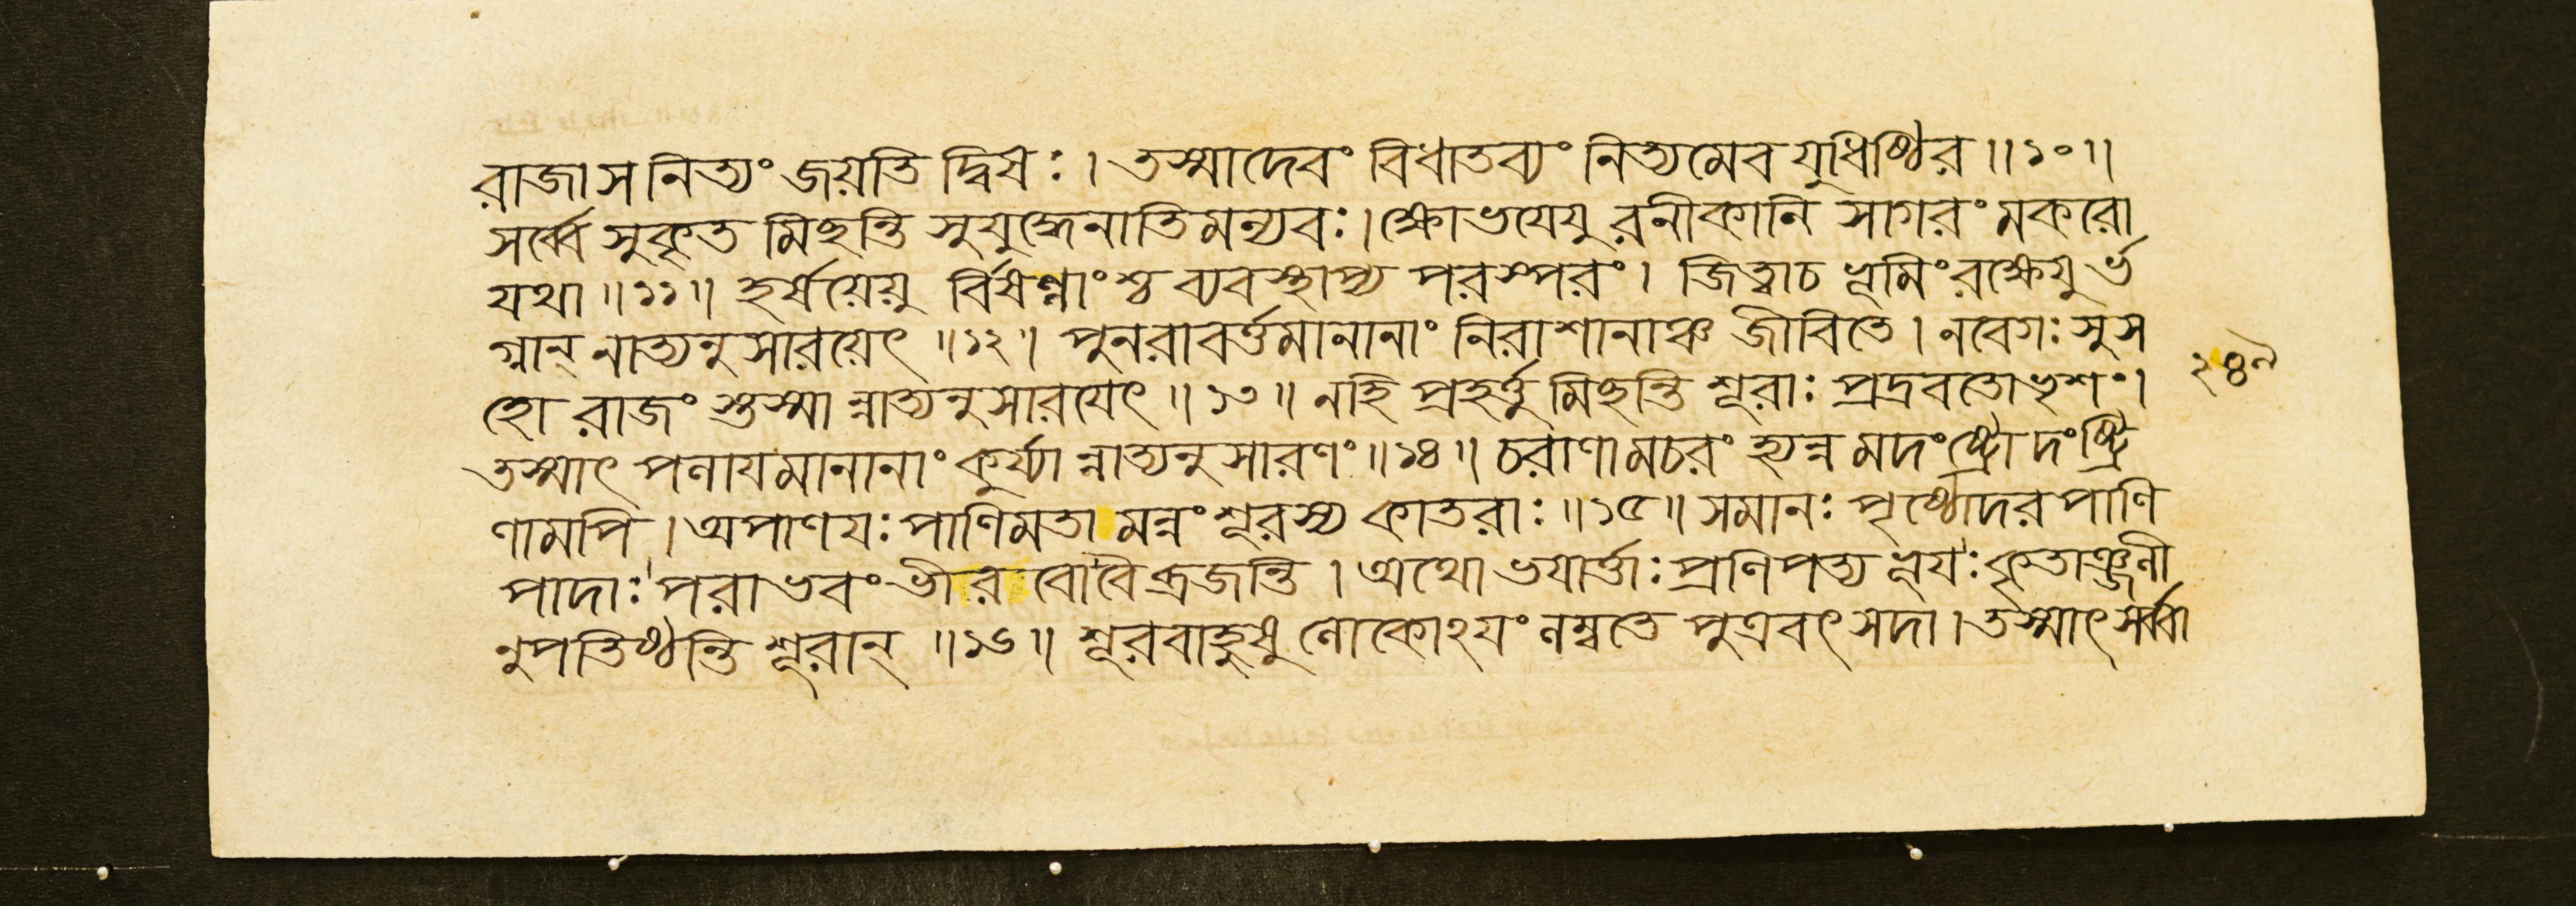 রাজা স নিত্যং জয়তি দ্বিষঃ । তস্মাদেবং বিধাতব্যং নিত্যমেব যুধিষ্ঠির ॥১০॥
সর্ব্বে সুকৃত মিছন্তি সুযুদ্ধেনাতিমন্যবঃ । ক্ষোভযেযু রনীকানি সাগরং মকরো
যথা ॥১১॥ হর্ষয়েয়ু র্বিষণ্ণাংশ্চ ব্যবস্থাপ্য পরস্পরং । জিত্বাচ ভূমিং রক্ষেযু র্ভ
গ্নান্ নাত্যনুসারয়েৎ ॥১২॥ পুনরাবর্ত্তমানানাং নিরাশানাঞ্চ জীবিতে । নবেগঃ সুস
হো রাজং স্তস্মা ন্নাত্যনুসারযেৎ ॥১৩॥ নহি প্রহর্ত্তু মিছন্তি শূরাঃ প্রদ্রবতোভৃশং ।
তস্মাৎ পলাযমানানাং কুর্য্যা ন্নাত্যনুসারণং ॥১৪॥ চরাণামচরং হ্যন্ন মদংষ্ট্রা দংষ্ট্রি
ণামপি । অপাণযঃ পাণিমতা মন্নং শূরস্য কাতরাঃ ॥১৫॥ সমানঃ পৃষ্ঠোদর পাণি
পাদাঃ পরাভবং ভীরবো বৈ ব্রজন্তি । অথো ভযার্ত্তাঃ প্রণিপত্য ভূযঃ কৃতাঞ্জলী
নুপতিষ্ঠন্তি শূরান্ ॥১৬॥ শূরবাহুষু লোকোঽযং লম্বতে পুত্রবৎ সদা । তস্মাৎ সর্ব্বা